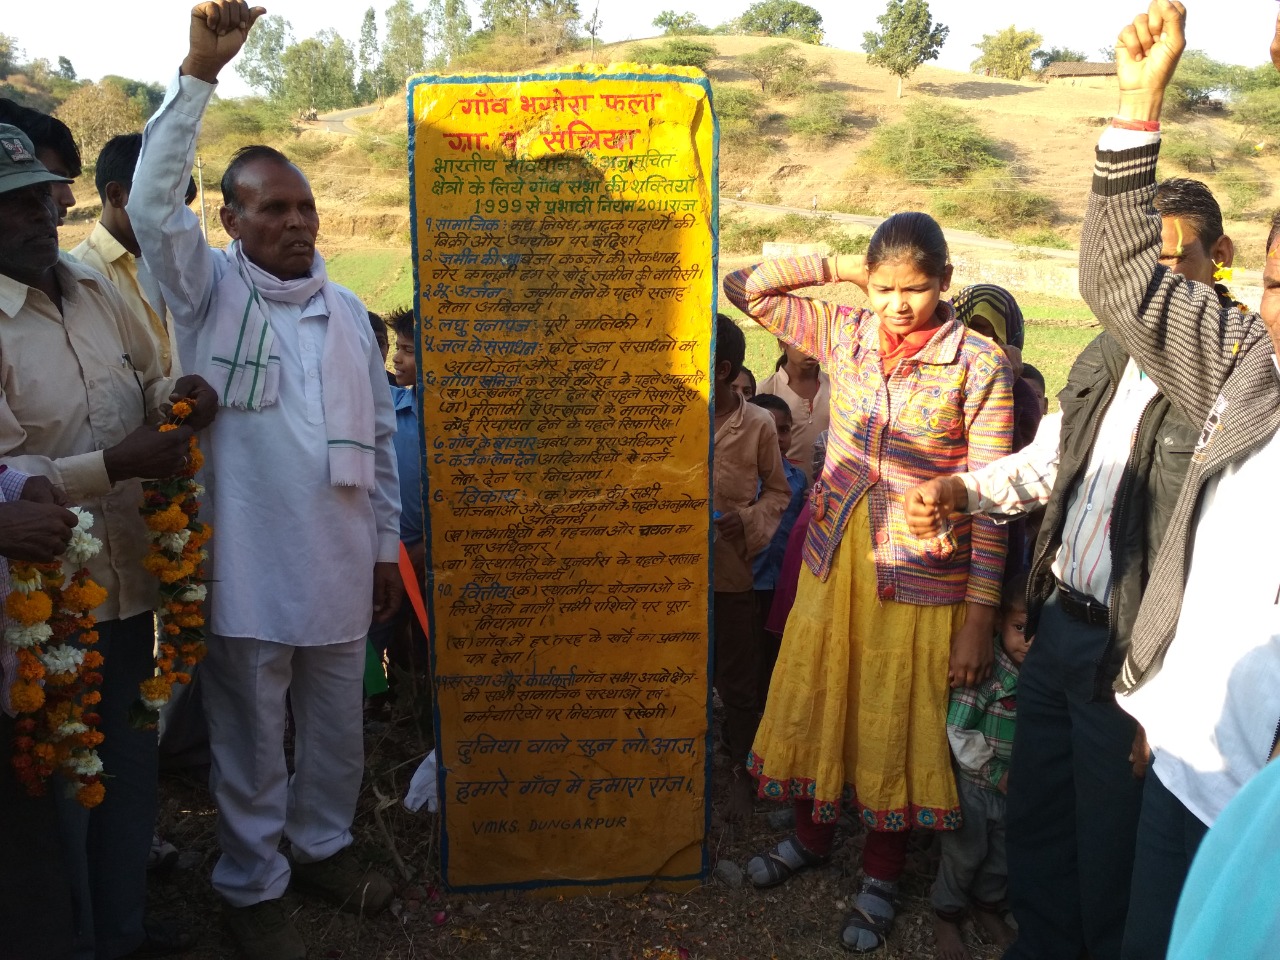 गाँव भगोरा फला
ग्रा. प. संचिया
भारतीय संविधान के अनुसूचित
क्षेत्रो के लिये गाँव सभा की शक्तियाँ
1999 से प्रभावी नियम 2011 राज
१. सामाजिक:- मध निषेध, मादक पदार्थो की
बिक्री और उपयोग पर बंदिश।
२. जमीन की बेजा कब्जो की रोकथाम,
गेर कानूनी ढंग से खोई जमीन की वापिसी।
३. भू-अर्जन:- जमीन लेने के पहले सलाह
लेना अनिवार्य
४. लघु वनोपज:- पूरी मालिकी।
५. जल के संसाधन:- छोटे जल संसाधनो का
आयोजन और प्रबंध।
६. गौण खनिज: (क) सर्वे वगेरह के पहले अनुमति
(ख) उत्खनन पट्टा देने से पहले सिफारिश
(ग) नीलामी से उत्खनन के मामलो मे
कोई रियायत देने के पहले सिफारिश।
७. गाँव के बाजार प्रबंध का पूरा अधिकार।
८. कर्ज के लेन देन आदिवासियो से कर्ज
लेन देन पर नियंत्रण।
९. विकास:- (क) गाँव की सभी
योजनाओ और कार्यक्रमो के पहले अनुमोदन
अनिवार्य।
(ख) लाभार्थियो की पहचान और चयन का
पूरा अधिकार।
(ग) विस्थापितो के पुनर्वास के पहले सलाह
लेना अनिवार्य।
१०. वित्तीय:(क) स्थानीय योजनाओ के
लिये आने वाली सभी राशियो पर पूरा-
नियंत्रण।
(ख) गाँव मे हर तरह के खर्चे का प्रमाण
पत्र देना।
११. संस्था और कार्यकर्त्ता गाँव सभा अपने क्षेत्र-
की सभी सामाजिक संस्थाओ एवं
कर्मचारियो पर नियंत्रण रखेगी।
दुनिया वाले सुन लो आज,
हमारे गाँव मे हमारा राज।
VMKS. DUNGARPUR